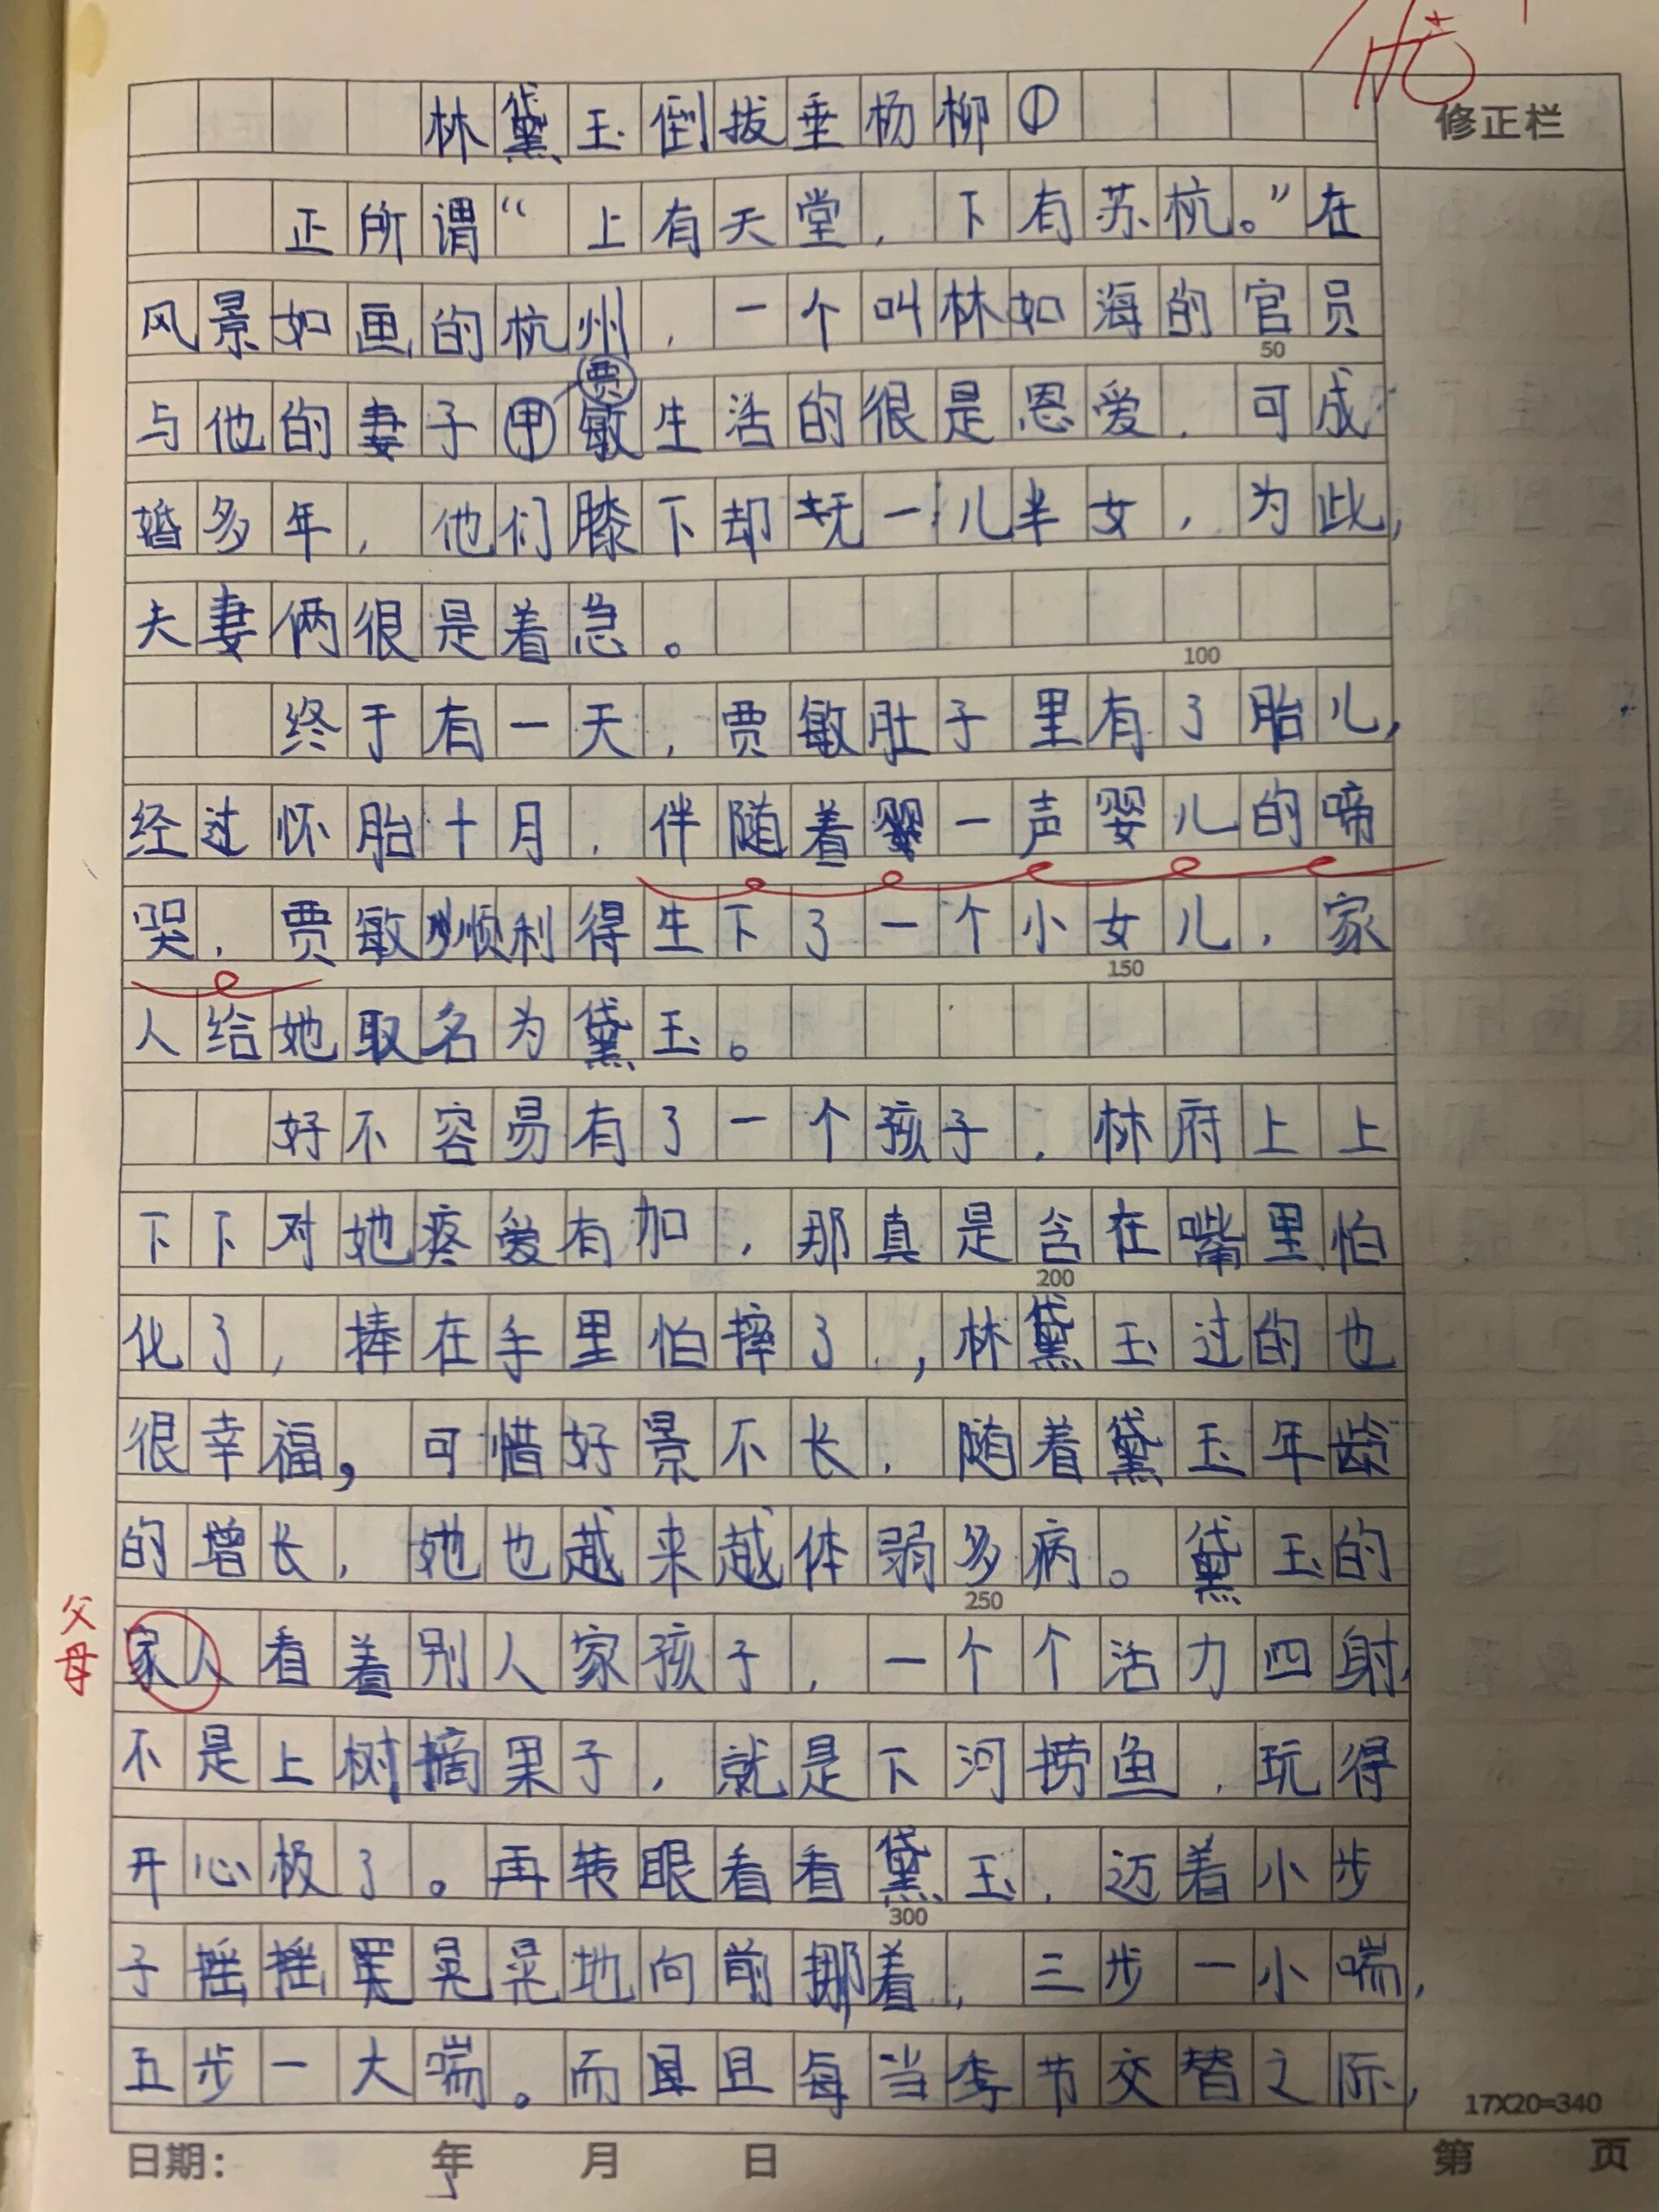 林黛玉倒拔垂杨柳①
修正栏
正所谓“上有天堂，下有苏杭。”在
风景如画的杭州，一个叫林如海的官员
50
贾
与他的妻子甲敏生活的很是恩爱，可成
婚多年，他们膝下却无一儿半女，为此，
夫妻俩很是着急。
100
终于有一天，贾敏肚子里有了胎儿，
经过怀胎十月，伴随着一声婴儿的啼
哭，贾敏顺利得生下了一个小女儿，家
150
人给她取名为黛玉。
好不容易有了一个孩子，林府上上
下下对她疼爱有加，那真是含在嘴里怕
200
化了，捧在手里怕摔了，林黛玉过的也
很幸福，可惜好景不长，随着黛玉年龄
的增长，她也越来越体弱多病。黛玉的
250
父母
家人看着别人家孩子，一个个活力四射，
不是上树摘果子，就是下河捞鱼，玩得
开心极了。再转眼看看黛玉，迈着小步
300
子摇摇晃晃地向前挪着，三步一小喘，
五步一大喘。而且每当季节交替之际，
17X20=340
日期： 年 月 日 第 页